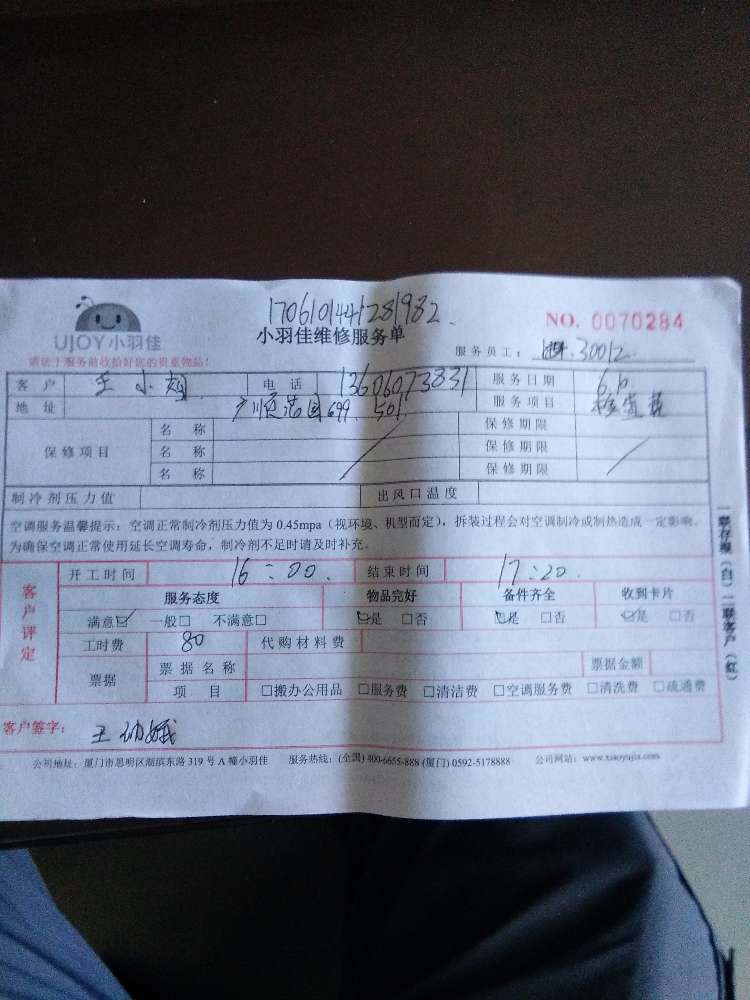 170610441281982
UJOY小羽佳
小羽佳维修服务单
NO. 0070284
请您于服务前收拾好您的贵重物品!
服务员工: 30012
客户 王小姐 电话 13606073831 服务日期 6.10
地址 699 501 服务项目
保修项目 名称 保修期限
名称 保修期限
名称 保修期限
制冷剂压力值 出风口温度
空调服务温馨提示:空调正常制冷剂压力值为0.45mpa(视环境、机型而定),拆装过程会对空调制冷或制热造成一定影响。
为确保空调正常使用延长空调寿命,制冷剂不足时请及时补充。
客户评定
开工时间 16:00 结束时间 17:20
服务态度 物品完好 备件齐全 收到卡片
满意☑ 一般□ 不满意□ ☑是 □否 ☑是 □否 ☑是 □否
工时费 80 代购材料费
票据 票据名称 票据金额
项目 □搬办公用品 □服务费 □清洁费 □空调服务费 □清洗费 □疏通费
客户签字: 王幼娥
公司地址:厦门市思明区湖滨东路319号A幢小羽佳 服务热线:(全国)400-6655-888(厦门)0592-5178888 公司网站:www.xiaoyujia.com
一联存根(白)二联客户(红)